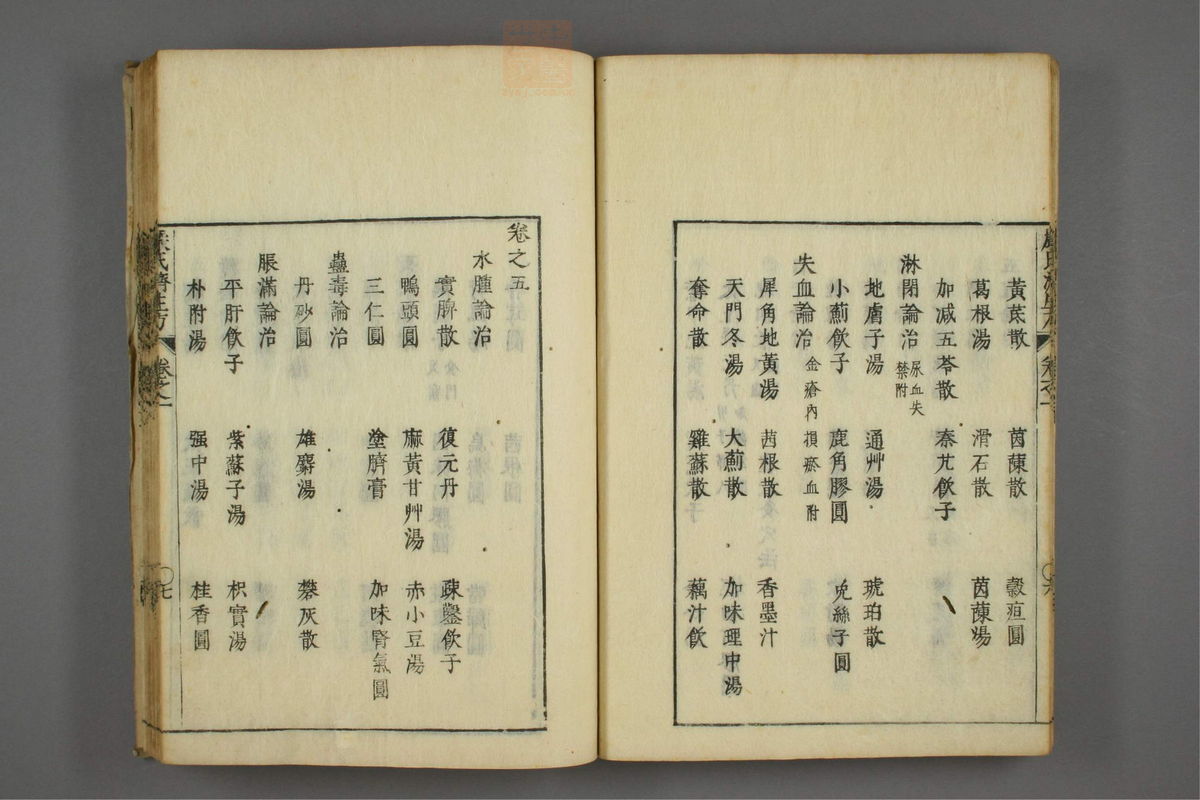 黃芪散 茵蔯散 穀疸圓
葛根湯 滑石散 茵蔯湯
加減五苓散 秦艽飲子
淋閉論治 尿血失禁附
地膚子湯 通艸湯 琥珀散
小薊飲子 鹿角膠圓 兔絲子圓
失血論治 金瘡內損瘀血附
犀角地黃湯 茜根散 香墨汁
天門冬湯 大薊散 加味理中湯
奪命散 雞蘇散 藕汁飲
卷之五
水腫論治
實脾散 復元丹 疎鑿飲子
鴨頭圓 麻黃甘艸湯 赤小豆湯
三仁圓 塗臍膏 加味腎氣圓
蠱毒論治
丹砂圓 雄麝湯 礬灰散
脹滿論治
平肝飲子 紫蘇子湯 枳實湯
朴附湯 强中湯 桂香圓
嚴氏濟生方 卷之一 〇七